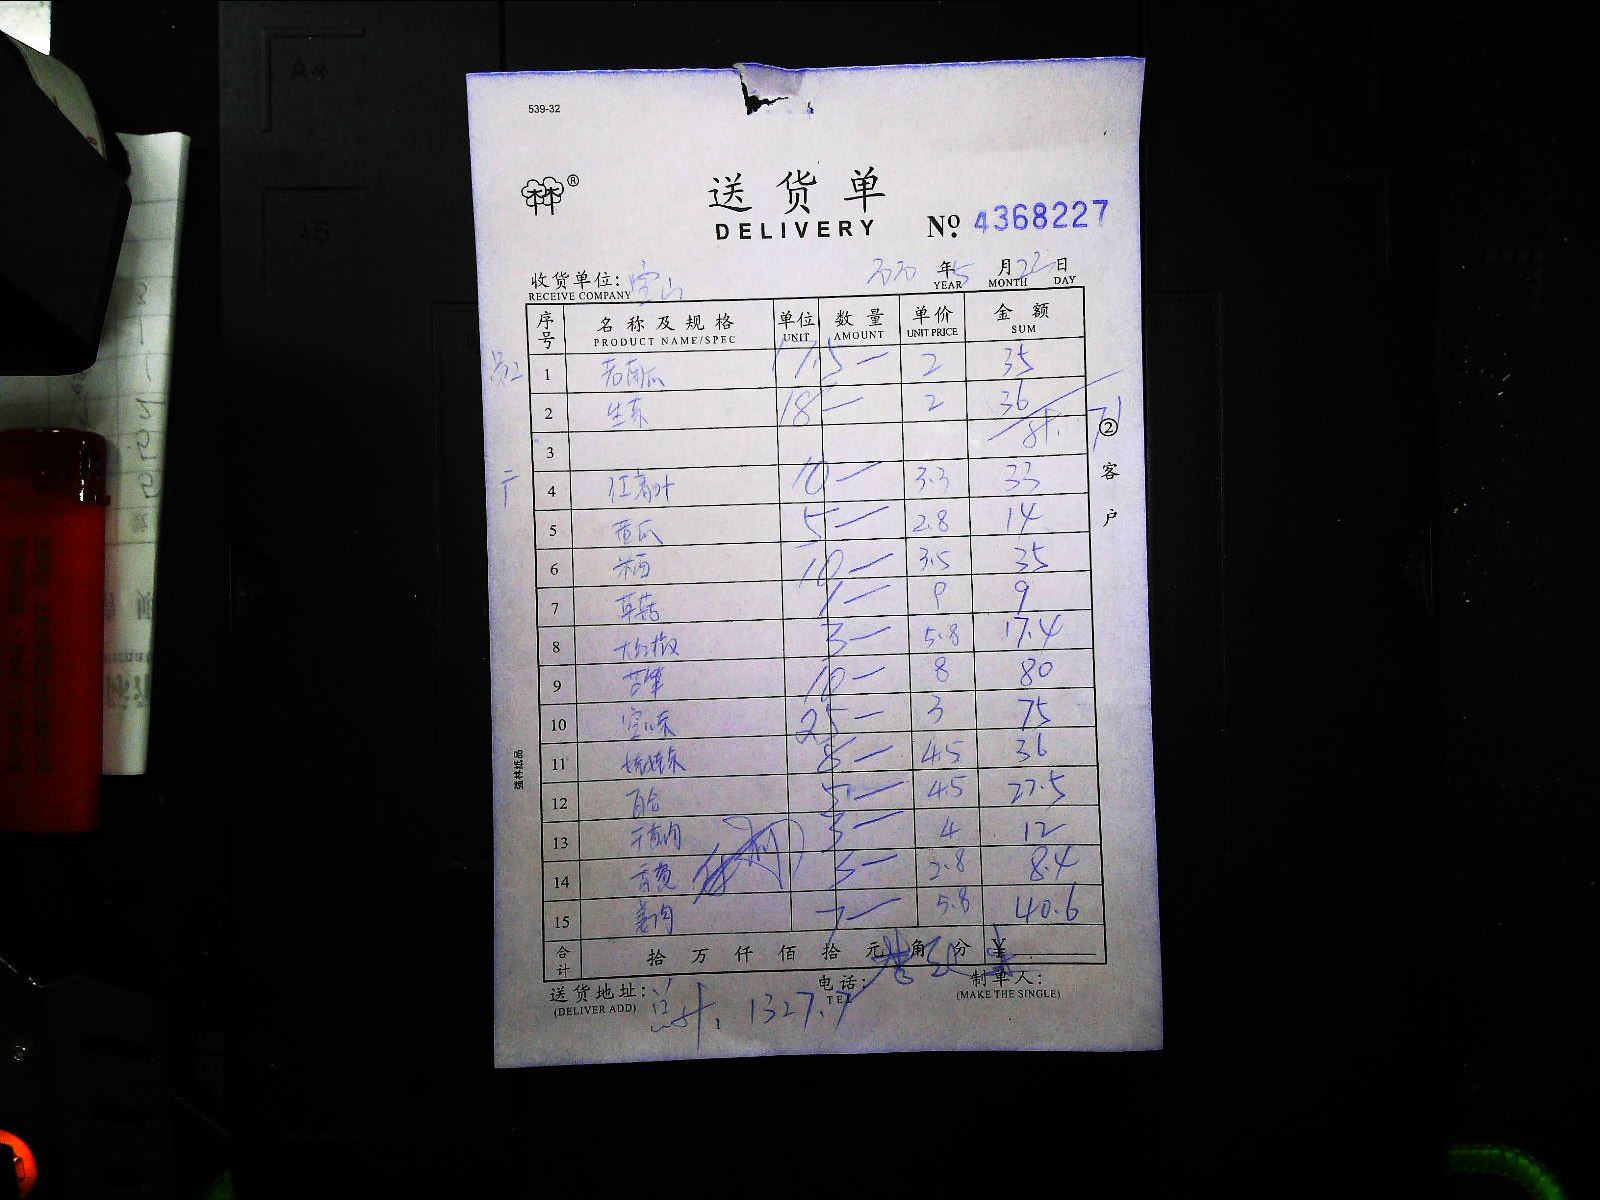 539-32
送货单
DELIVERY
№ 4368227
收货单位:
RECEIVE COMPANY
年5月22日
YEAR MONTH DAY
序号 名称及规格 单位 数量 单价 金额
PRODUCT NAME/SPEC UNIT AMOUNT UNIT PRICE SUM
员工 1 老南瓜 17.5 — 2 35
2 生菜 18 — 2 36
3 计. 71
4 10 — 3.3 33
5 黄瓜 5 — 2.8 14
6 10 — 3.5 35
7 1 — 9 9
8 大红椒 3 — 5.8 17.4
9 10 — 8 80
10 25 — 3 75
11 娃娃菜 8 — 4.5 36
12 百合 5 — 45 27.5
13 3 — 4 12
14 3 — 2.8 8.4
15 姜肉 7 — 5.8 40.6
合计 拾 万 仟 佰 拾 元 角 分 ¥
②客户
强林纸品
送货地址: 电话: 制单人:
(DELIVER ADD) TEL (MAKE THE SINGLE)
总计. 1327.7
A4
A5